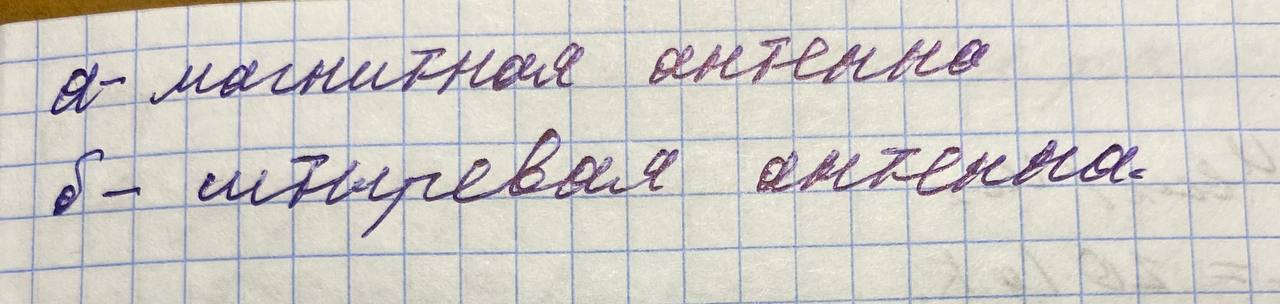 а- магнитная антенна
б- штыревая антенна.